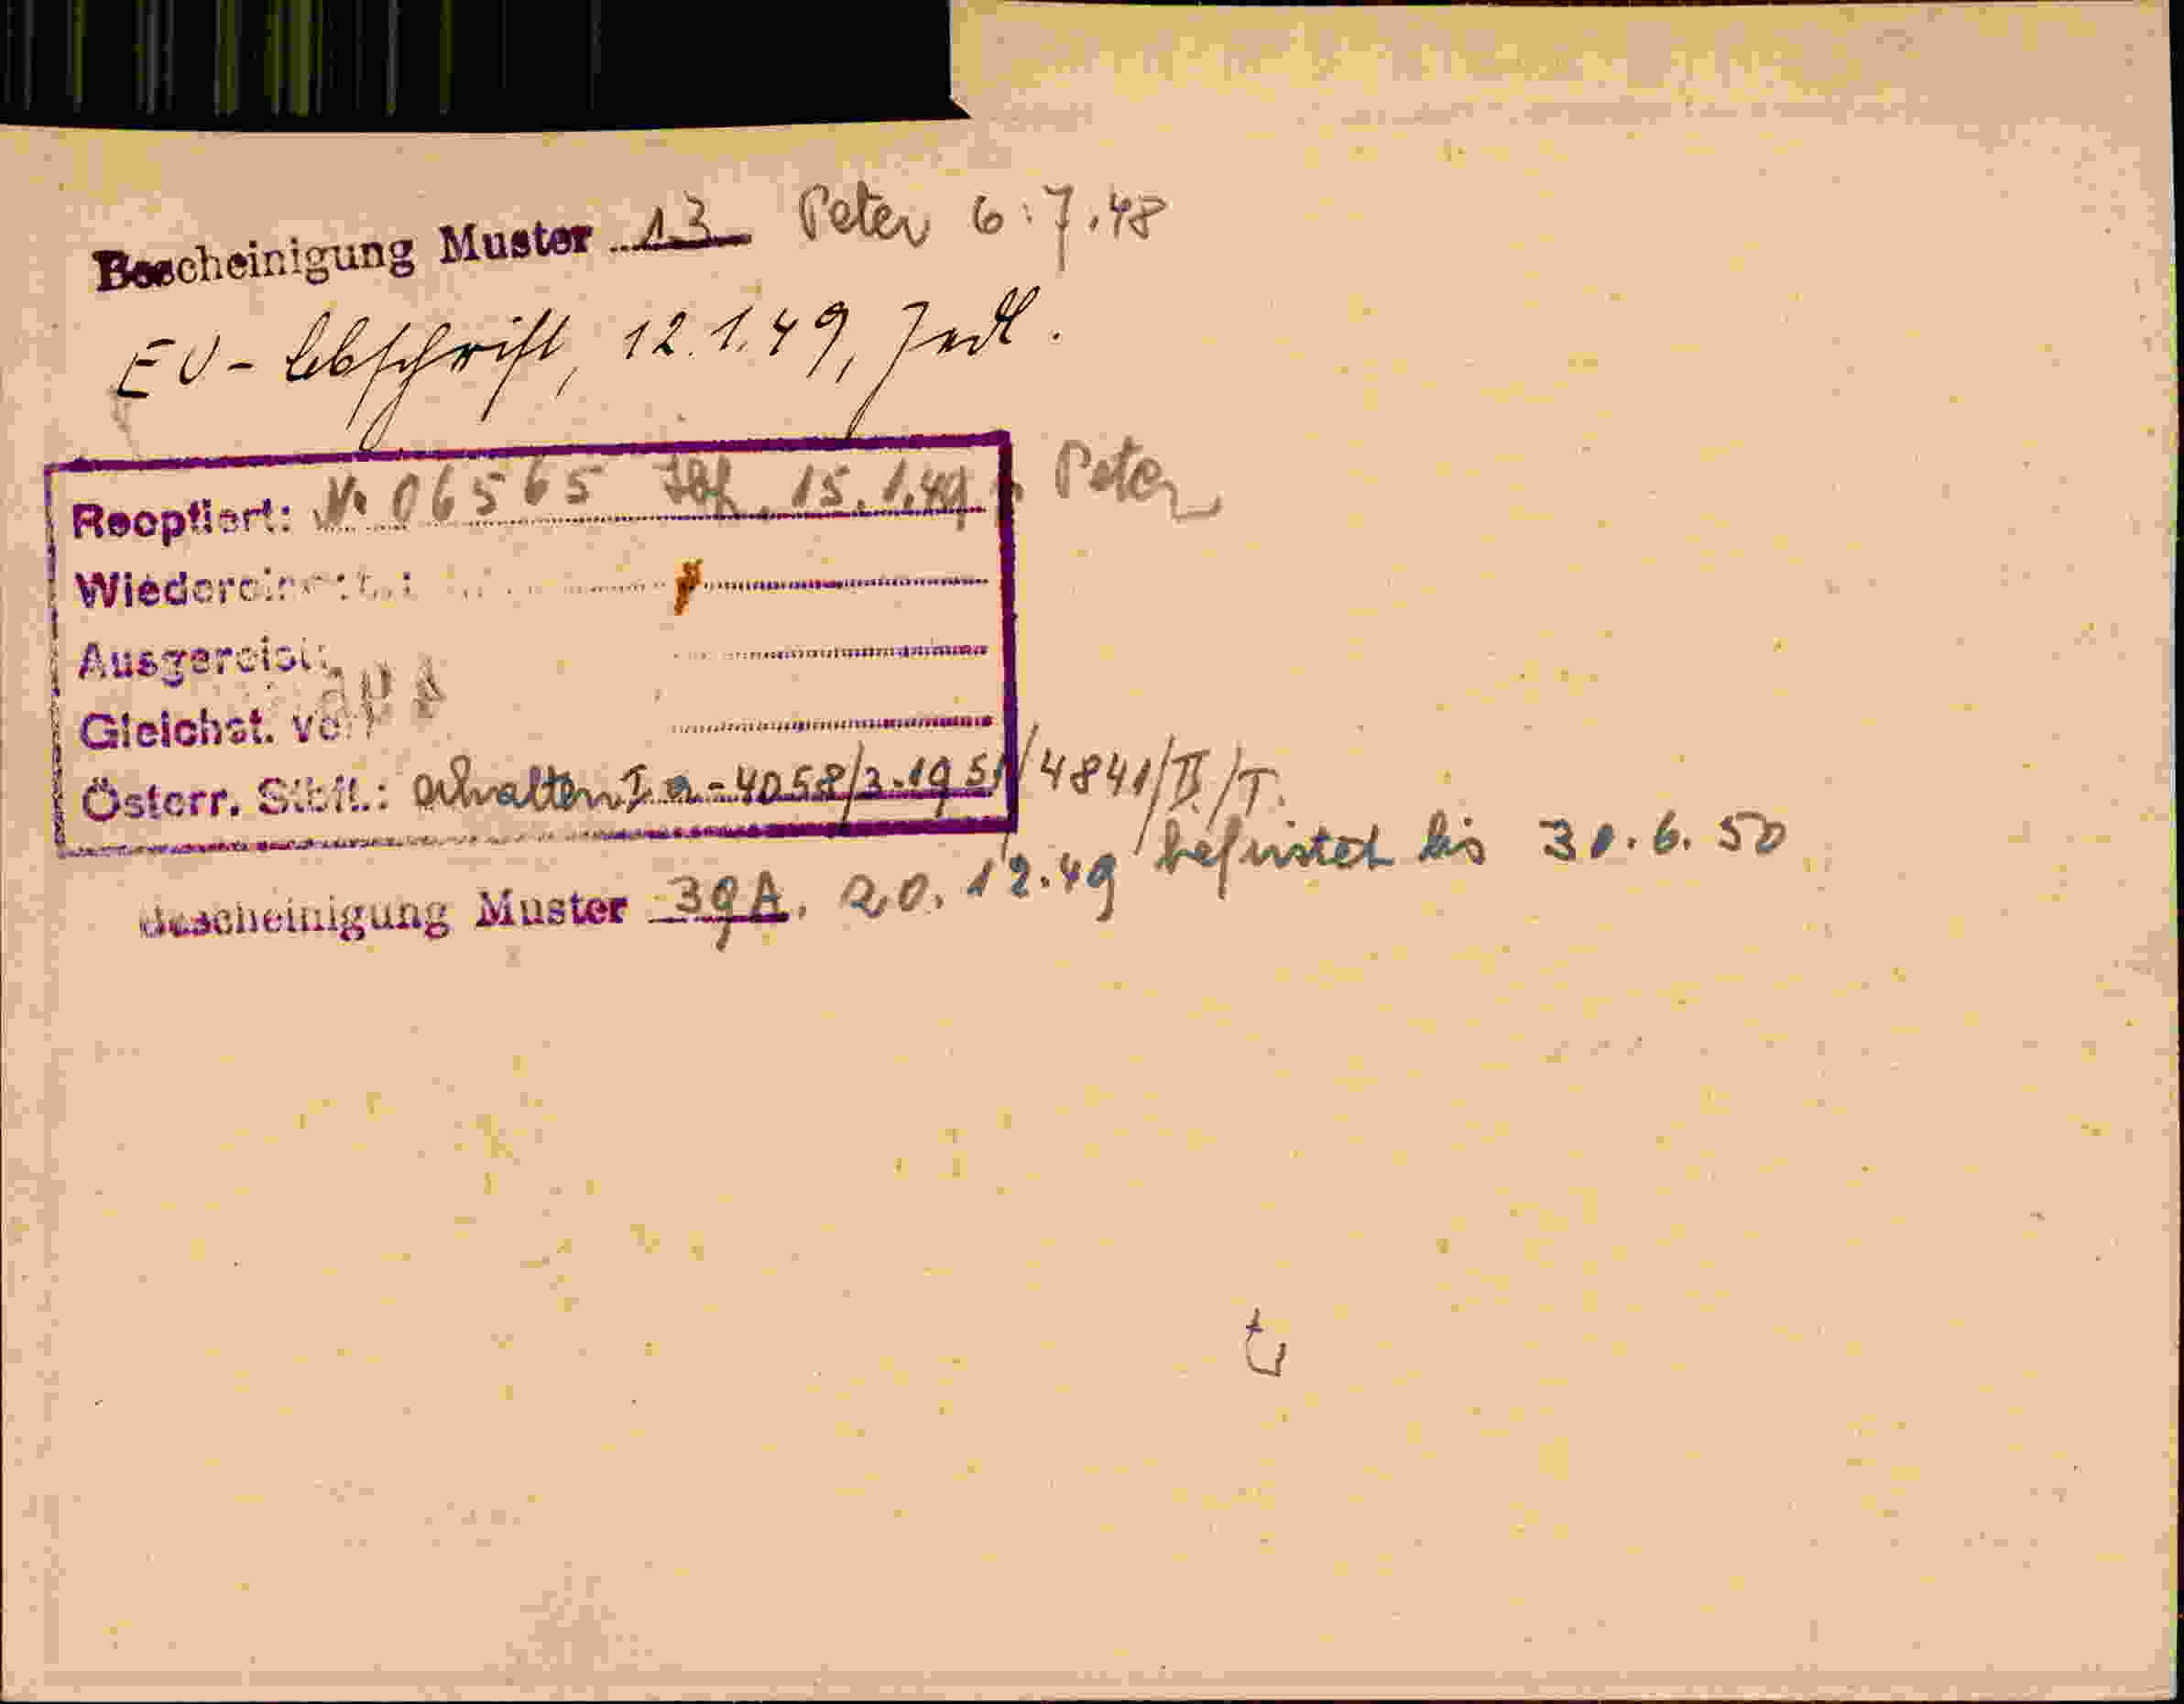 Bescheinigung Muster 13 Peter 6.7.48
EU-Abschrift, 12.1.49, Jedl.
Reoptiert: N. 06565 Ibk. 15.1.49 Peter
Wiedereinetzt:
Ausgereist:
Gleichst. Verf
Österr. Stbft.: erhalten I a-4058/3-1951/4841/II/T.
Bescheinigung Muster 39A. 20.12.49 befristet bis 30.6.50